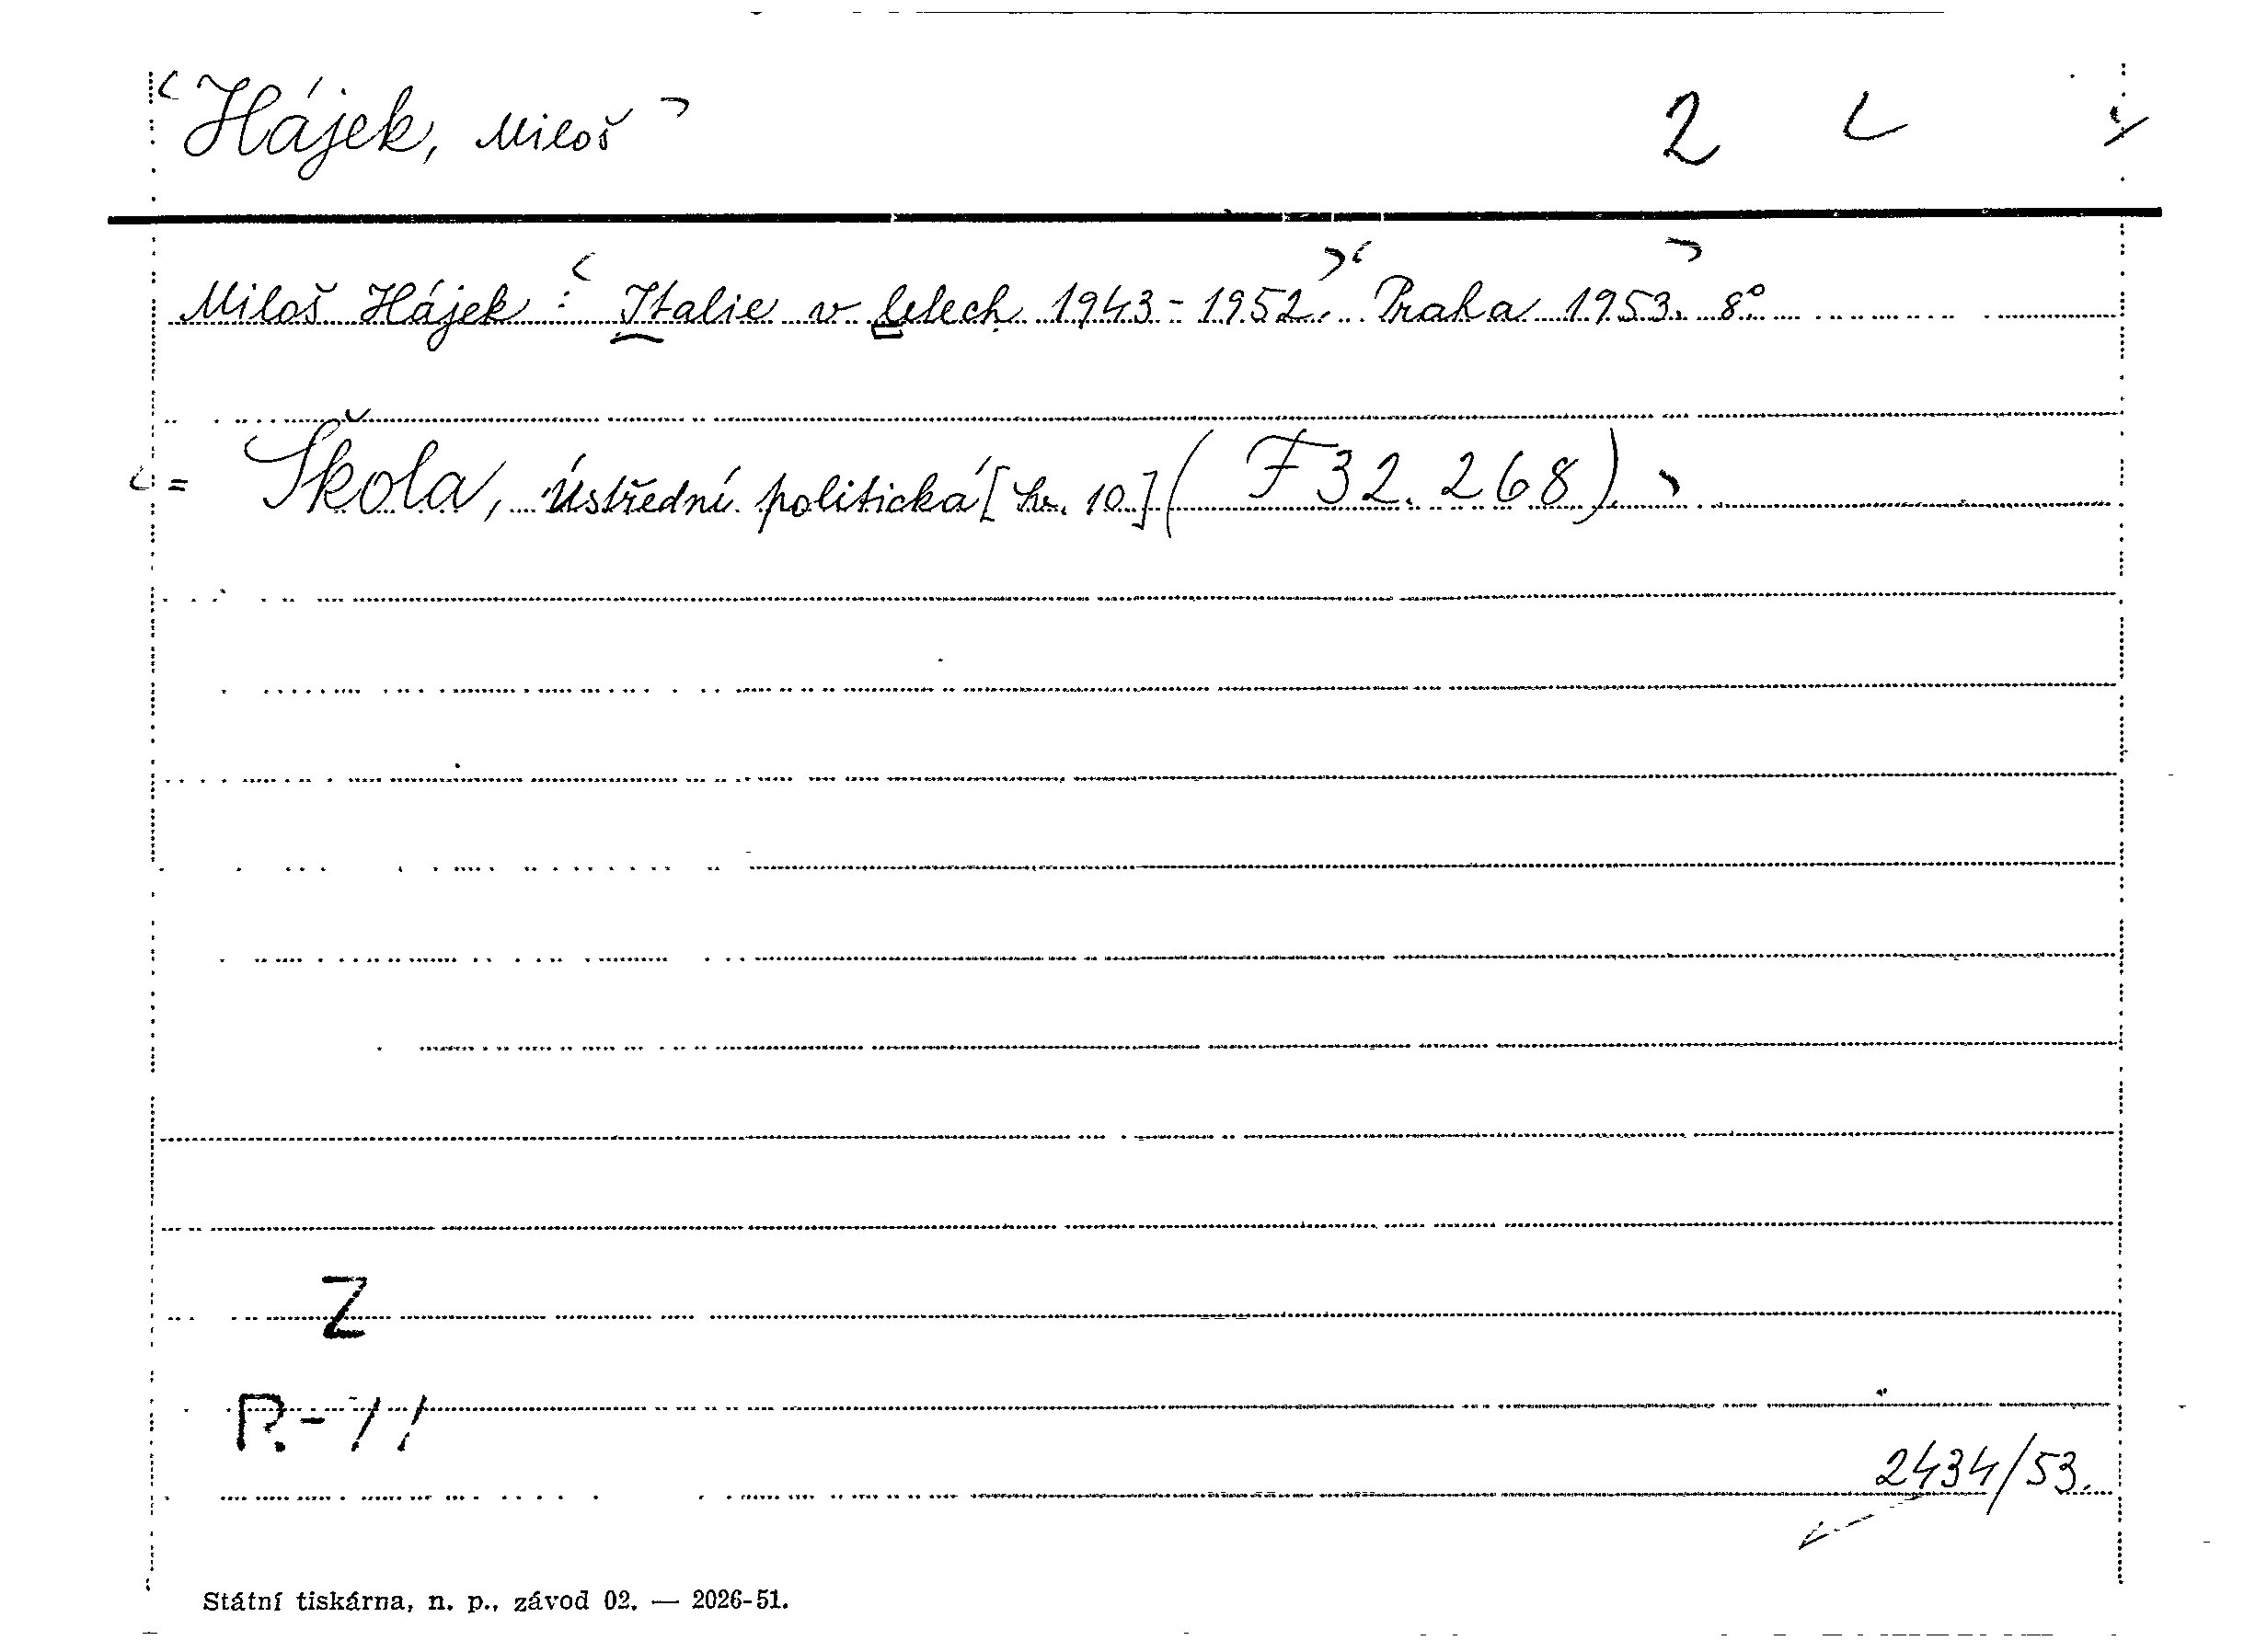 Hájek, Miloš 2
Miloš Hájek: Italie v letech 1943-1952. Praha 1953. 8°
= Škola, Ústřední politická [sv. 10.] (F 32.268)
Z
P.-11
2434/53.
Státní tiskárna, n. p., závod 02. — 2026-51.